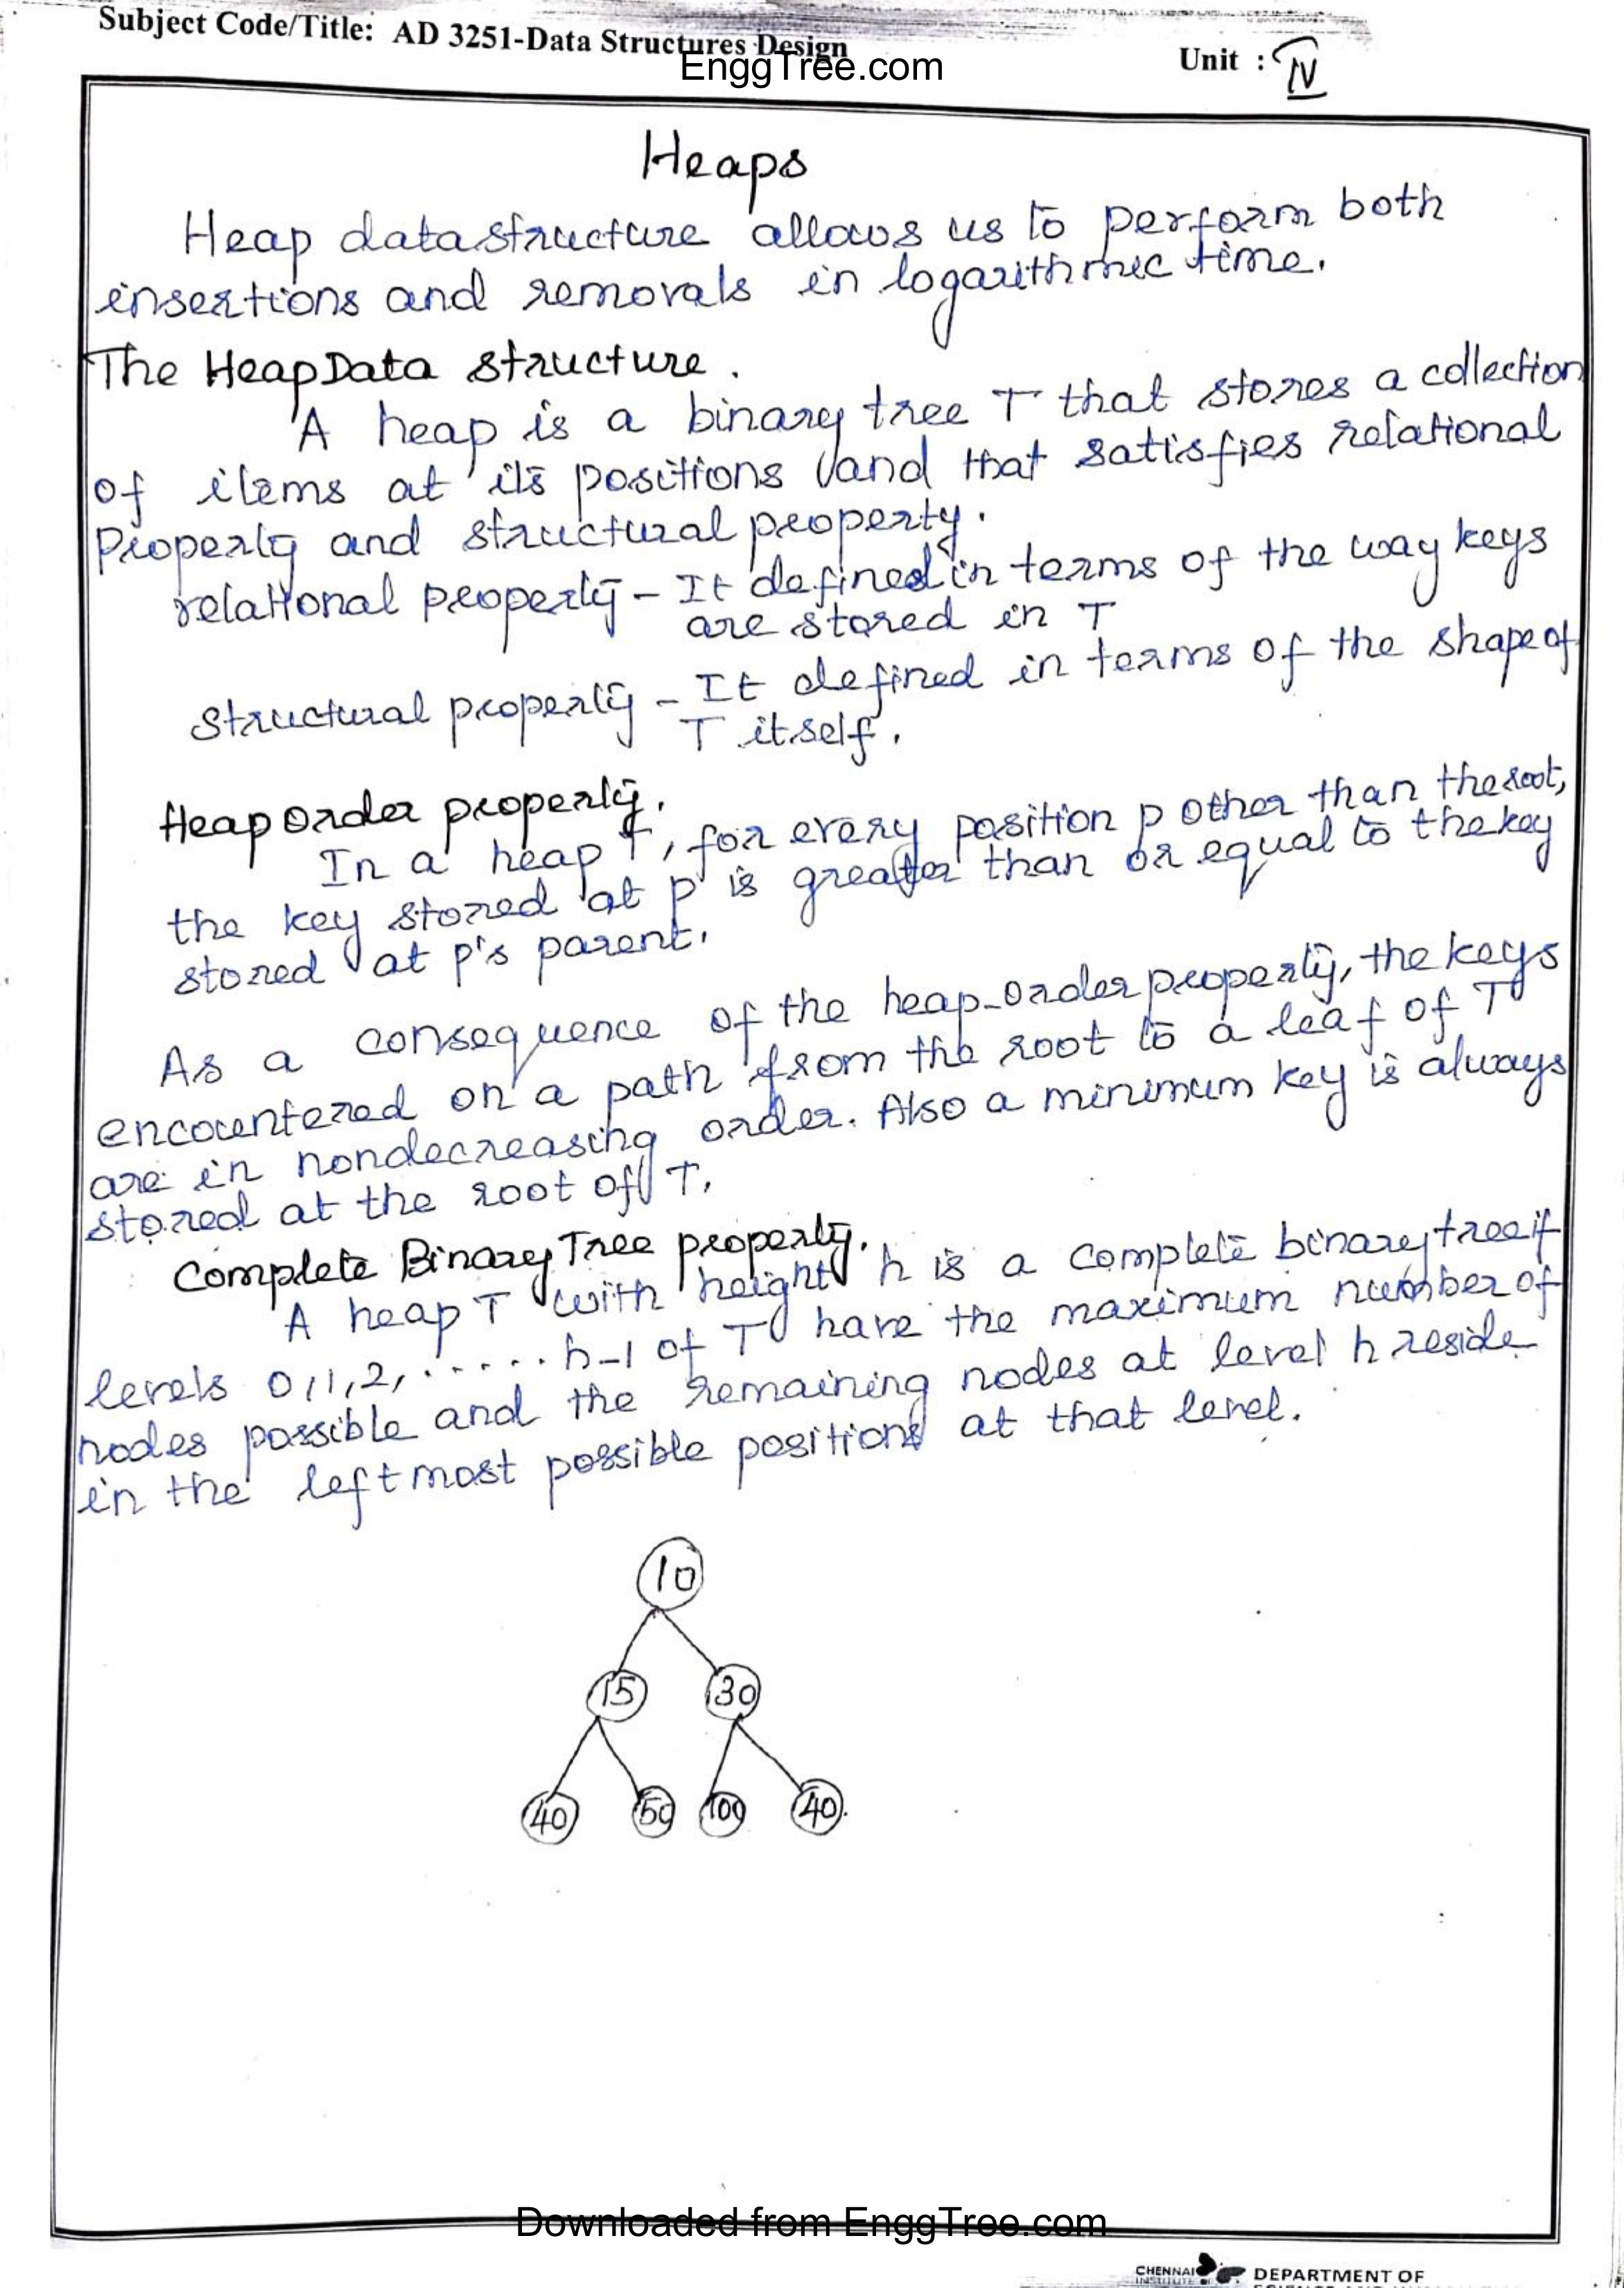 Subject Code/Title: AD 3251-Data Structures Design
EnggTree.com
Unit : IV
Heaps
Heap datastructure allows us to perform both
insertions and removals in logarithmic time.
The Heap Data structure.
A heap is a binary tree T that stores a collection
of items at its positions and that satisfies relational
Property and structural property.
relational property - It defined in terms of the way keys
are stored in T
Structural property - It defined in terms of the shape of
T itself.
Heap order property.
In a heap T, for every position p other than the root,
the key stored at p is greater than or equal to the key
stored at p's parent.
As a consequence of the heap-order property, the keys
encountered on a path from the root to a leaf of T
are in nondecreasing order. Also a minimum key is always
stored at the root of T.
Complete Binary Tree property.
A heap T with height h is a complete binary tree if
levels 0,1,2,......h-1 of T have the maximum number of
nodes possible and the remaining nodes at level h reside
in the leftmost possible positions at that level.
10
15 30
40 50 100 40
Downloaded from EnggTree.com
CHENNAI
INSTITUTE
DEPARTMENT OF